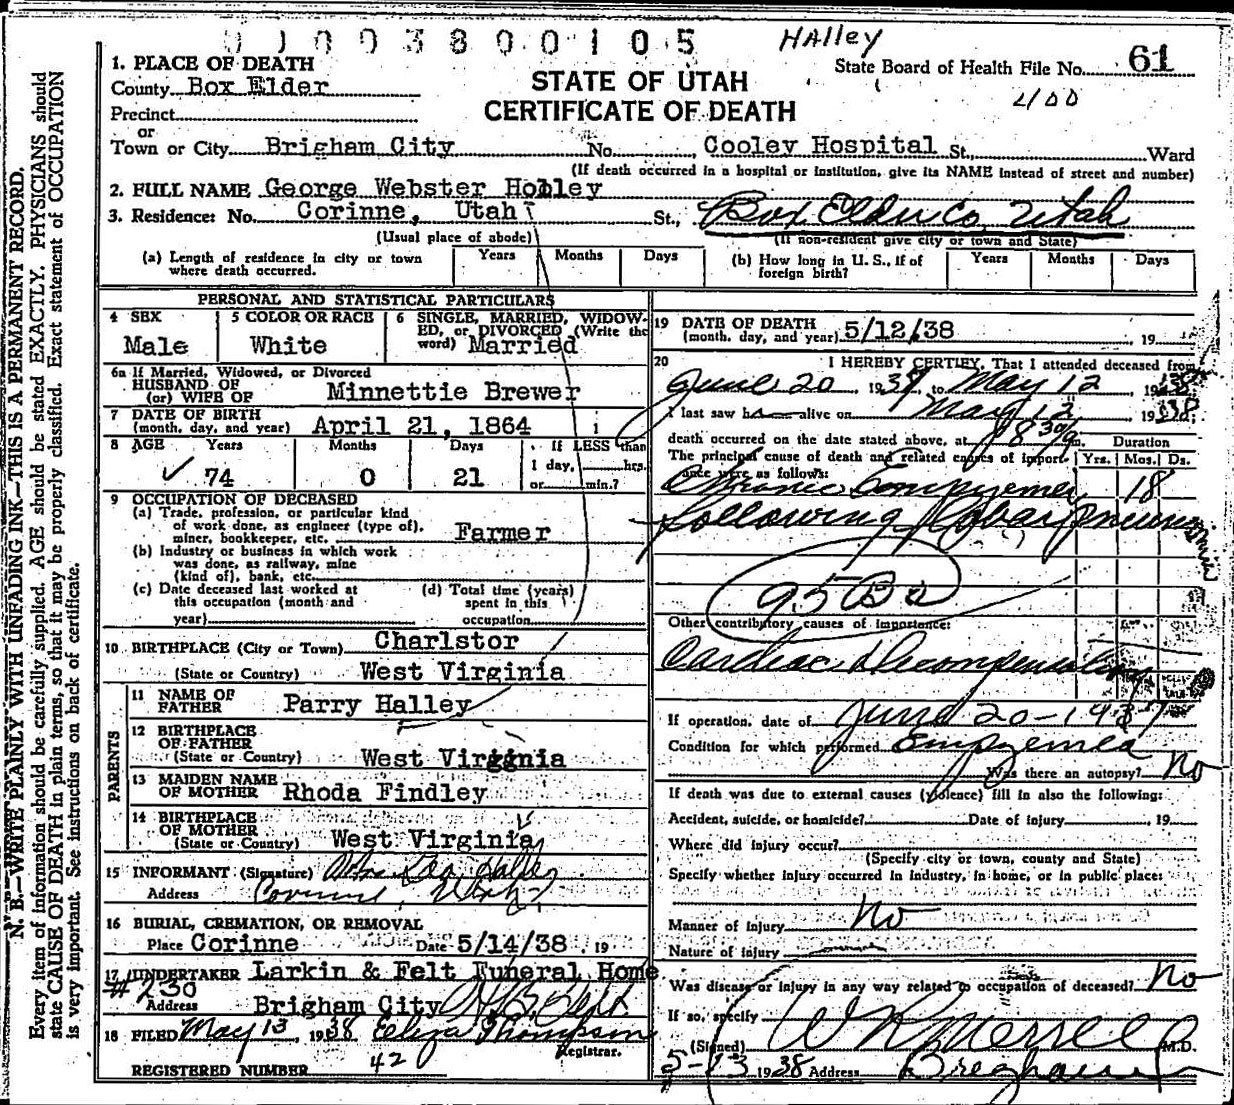 0 1 0 0 3 8 0 0 1 0 5
HAlley
State Board of Health File No. 61
2100
1. PLACE OF DEATH
STATE OF UTAH
County Box Elder
CERTIFICATE OF DEATH
Precinct
or
Town or City Brigham City No. Cooley Hospital St., Ward
(If death occurred in a hospital or institution, give its NAME instead of street and number)
2. FULL NAME George Webster Holley
3. Residence: No. Corinne, Utah St., Box Elder Co, Utah
(Usual place of abode) (If non-resident give city or town and State)
(a) Length of residence in city or town where death occurred. Years Months Days (b) How long in U. S., if of foreign birth? Years Months Days
PERSONAL AND STATISTICAL PARTICULARS
4 SEX Male
5 COLOR OR RACE White
6 SINGLE, MARRIED, WIDOWED, or DIVORCED (Write the word) Married
6a If Married, Widowed, or Divorced
HUSBAND OF
(or) WIFE OF Minnettie Brewer
7 DATE OF BIRTH
(month, day, and year) April 21, 1864
8 AGE Years Months Days If LESS than
74 0 21 1 day, hrs.
or min.?
9 OCCUPATION OF DECEASED
(a) Trade, profession, or particular kind
of work done, as engineer (type of),
miner, bookkeeper, etc. Farmer
(b) Industry or business in which work
was done, as railway, mine
(kind of), bank, etc.
(c) Date deceased last worked at
this occupation (month and
year)
(d) Total time (years)
spent in this
occupation
10 BIRTHPLACE (City or Town) Charlstor
(State or Country) West Virginia
PARENTS
11 NAME OF
FATHER Parry Halley
12 BIRTHPLACE
OF FATHER
(State or Country) West Virginia
13 MAIDEN NAME
OF MOTHER Rhoda Findley
14 BIRTHPLACE
OF MOTHER
(State or Country) West Virginia
15 INFORMANT (Signature)
Address Corinne, Utah
16 BURIAL, CREMATION, OR REMOVAL
Place Corinne Date 5/14/38 19
17 UNDERTAKER Larkin & Felt Funeral Home
#230
Address Brigham City
18 FILED May 13, 1938 Eliza Thompson
Registrar.
42
REGISTERED NUMBER
19 DATE OF DEATH
(month, day, and year) 5/12/38 , 19
20 I HEREBY CERTIFY, That I attended deceased from
June 20, 1937, to May 12, 1938
I last saw h alive on May 12, 1938
death occurred on the date stated above, at 8 30 m. Duration
The principal cause of death and related causes of importance were as follows: Yrs. Mos. Ds.
Chronic Empyemea 18
following Lobar pneumonia
95B2
Other contributory causes of importance:
Cardiac Decompensation
If operation, date of June 20-1937
Condition for which performed Empyemea
Was there an autopsy? No
If death was due to external causes (violence) fill in also the following:
Accident, suicide, or homicide? Date of injury , 19
Where did injury occur?
(Specify city or town, county and State)
Specify whether injury occurred in industry, in home, or in public place:
Manner of injury No
Nature of injury
Was disease or injury in any way related to occupation of deceased? No
If so, specify
(Signed) W R Merrell M.D.
5-13 1938 Address Brigham
N. B.—WRITE PLAINLY WITH UNFADING INK—THIS IS A PERMANENT RECORD.
Every item of information should be carefully supplied. AGE should be stated EXACTLY. PHYSICIANS should
state CAUSE OF DEATH in plain terms, so that it may be properly classified. Exact statement of OCCUPATION
is very important. See instructions on back of certificate.